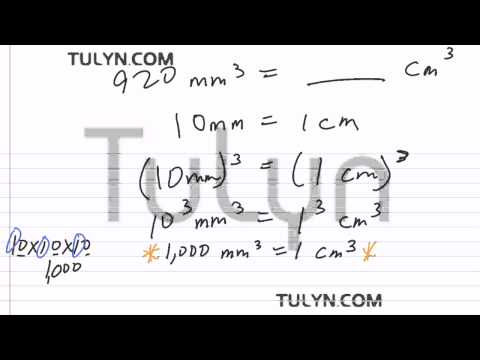 TULYN.COM
920 mm³ = ____ cm³
10mm = 1 cm
(10mm)³ = (1 cm)³
Tulyn
10³ mm³ = 1³ cm³
10x10x10
1,000
* 1,000 mm³ = 1 cm³ *
TULYN.COM